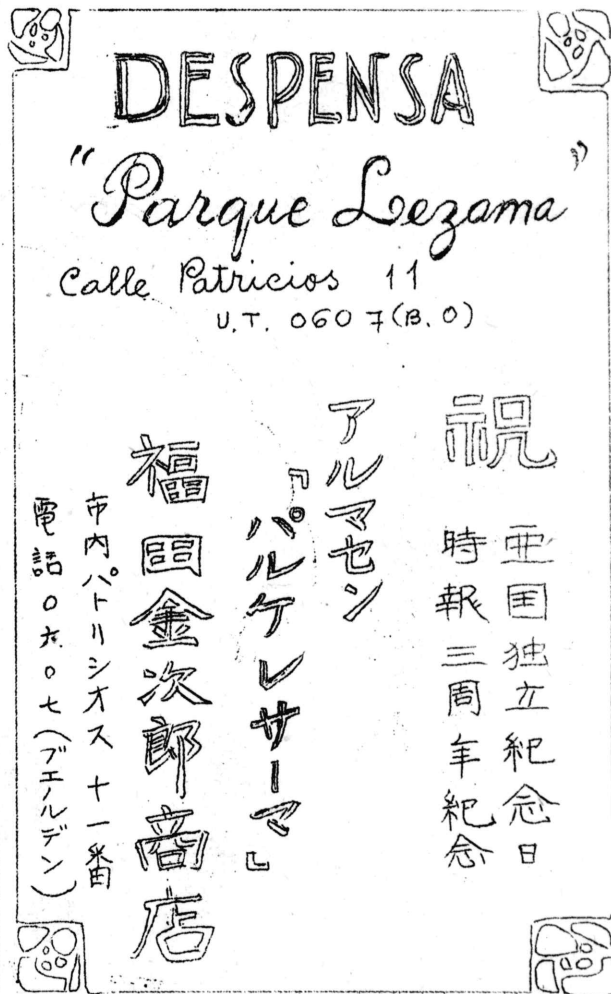 DESPENSA
"Parque Lezama"
Calle Patricios 11
U.T. 0607 (B.O)
祝
亜国独立紀念日
時報三周年紀念
アルマセン
『パルケレサーマ』
福田金次郎商店
市内パトリシオス十一番
電話〇六〇七(ブエルデン)